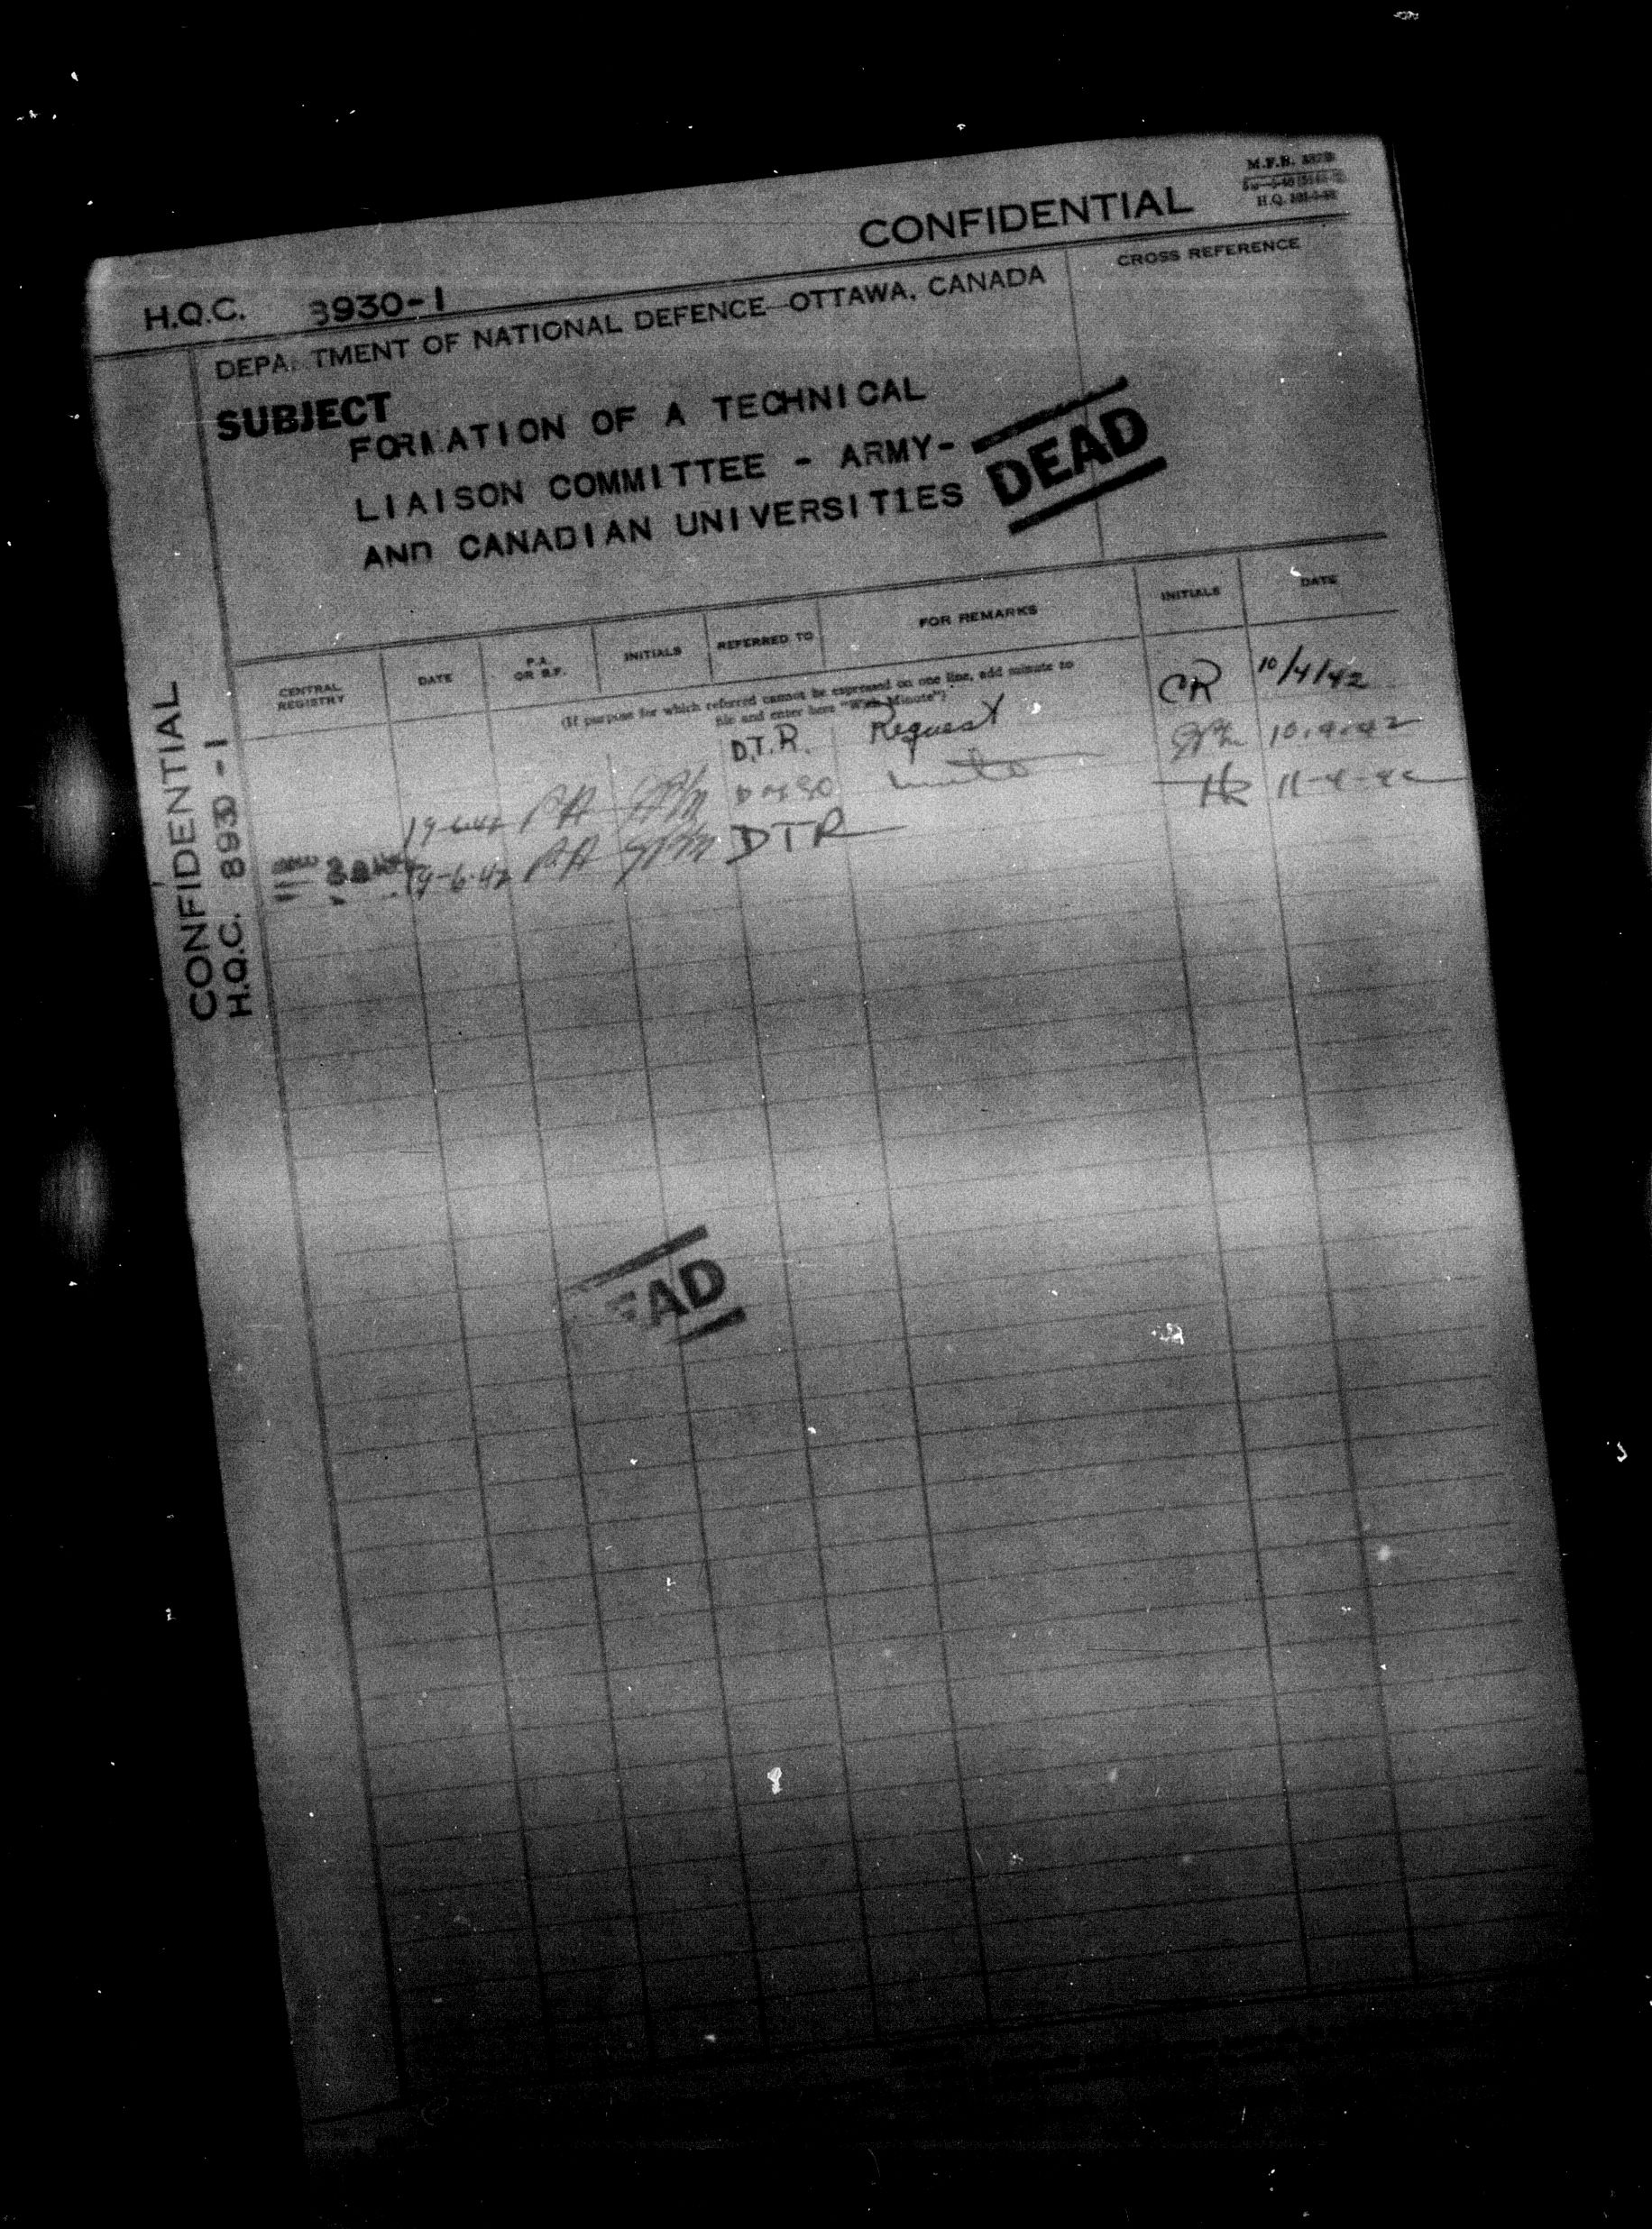 M.F.B.
H.Q.
CONFIDENTIAL
H.Q.C. 8930-1
CROSS REFERENCE
DEPA TMENT OF NATIONAL DEFENCE—OTTAWA, CANADA
SUBJECT
FORMATION OF A TECHNICAL
LIAISON COMMITTEE - ARMY-
AND CANADIAN UNIVERSITIES
DEAD
CENTRAL REGISTRY DATE P.A. OR B.F. INITIALS REFERRED TO FOR REMARKS INITIALS DATE
(If purpose for which referred cannot be expressed on one line, add minute to
file and enter here "With Minute")
D.T.R. Request CR 10/4/42
10.4.42
19-6-42 PA DTR HR 11-4-42
19-6-42 PA
CONFIDENTIAL
H.Q.C. 8930-1
EAD